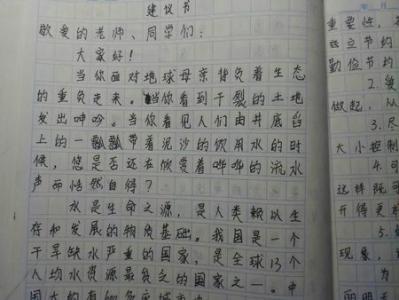 建议书
敬爱的老师、同学们:
大家好!
当你面对地球母亲背负着生态
的重负走来。当你看到干裂的土地
发出呻吟。当你看见人们由井底舀
上的一瓢瓢带着泥沙的饮用水的时
候,您是否还在欣受着哗哗的流水
声而怡然自得?
水是生命之源,是人类赖以生
存和发展的物质基础。我国是一个
干旱缺水严重的国家,是全球13个
人均水资源最贫乏的国家之一。中
国大约有
重要性,
应立节约
勤俭节约
2.
做起,从
3.尽
大小控制
4.可
这样既可
开得更
5.
现象,
为